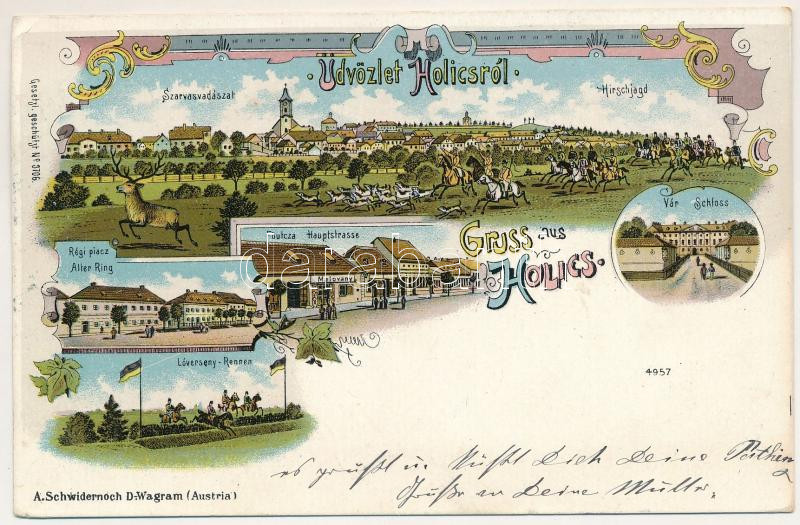 Üdvözlet Holicsról
Szarvasvadászat
Hirschjagd
Gesetzl. geschützt Nº 3706.
Régi piacz
Alter Ring
Főutcza Hauptstrasse
Vár Schloss
Gruss aus
Holics.
darabanth
Lóverseny-Rennen
4957
es grüßt u. küßt Dich Deine
Grüße an Deine Mutter.
A. Schwidernoch D-Wagram (Austria)